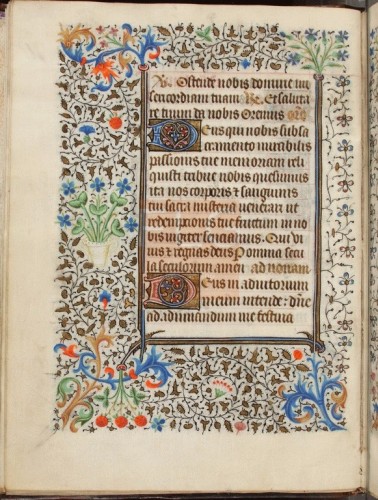 V. Ostende nobis domine mi
sericordiam tuam R. Et saluta
re tuum da nobis Oremus oro
Deus qui nobis sub sa
cramento mirabilis
passionis tue memoriam reli
quisti tribue nobis quesumus
ita nos corporis & sanguinis
tui sacra misteria venerari ut
redemptionis tue fructum in no
bis iugiter senciamus. Qui vi
vis & regnas deus P omnia secu
la seculorum amen ad nonam
Deus in adiutorium
meum intende: dne
ad adiuvandum me festina